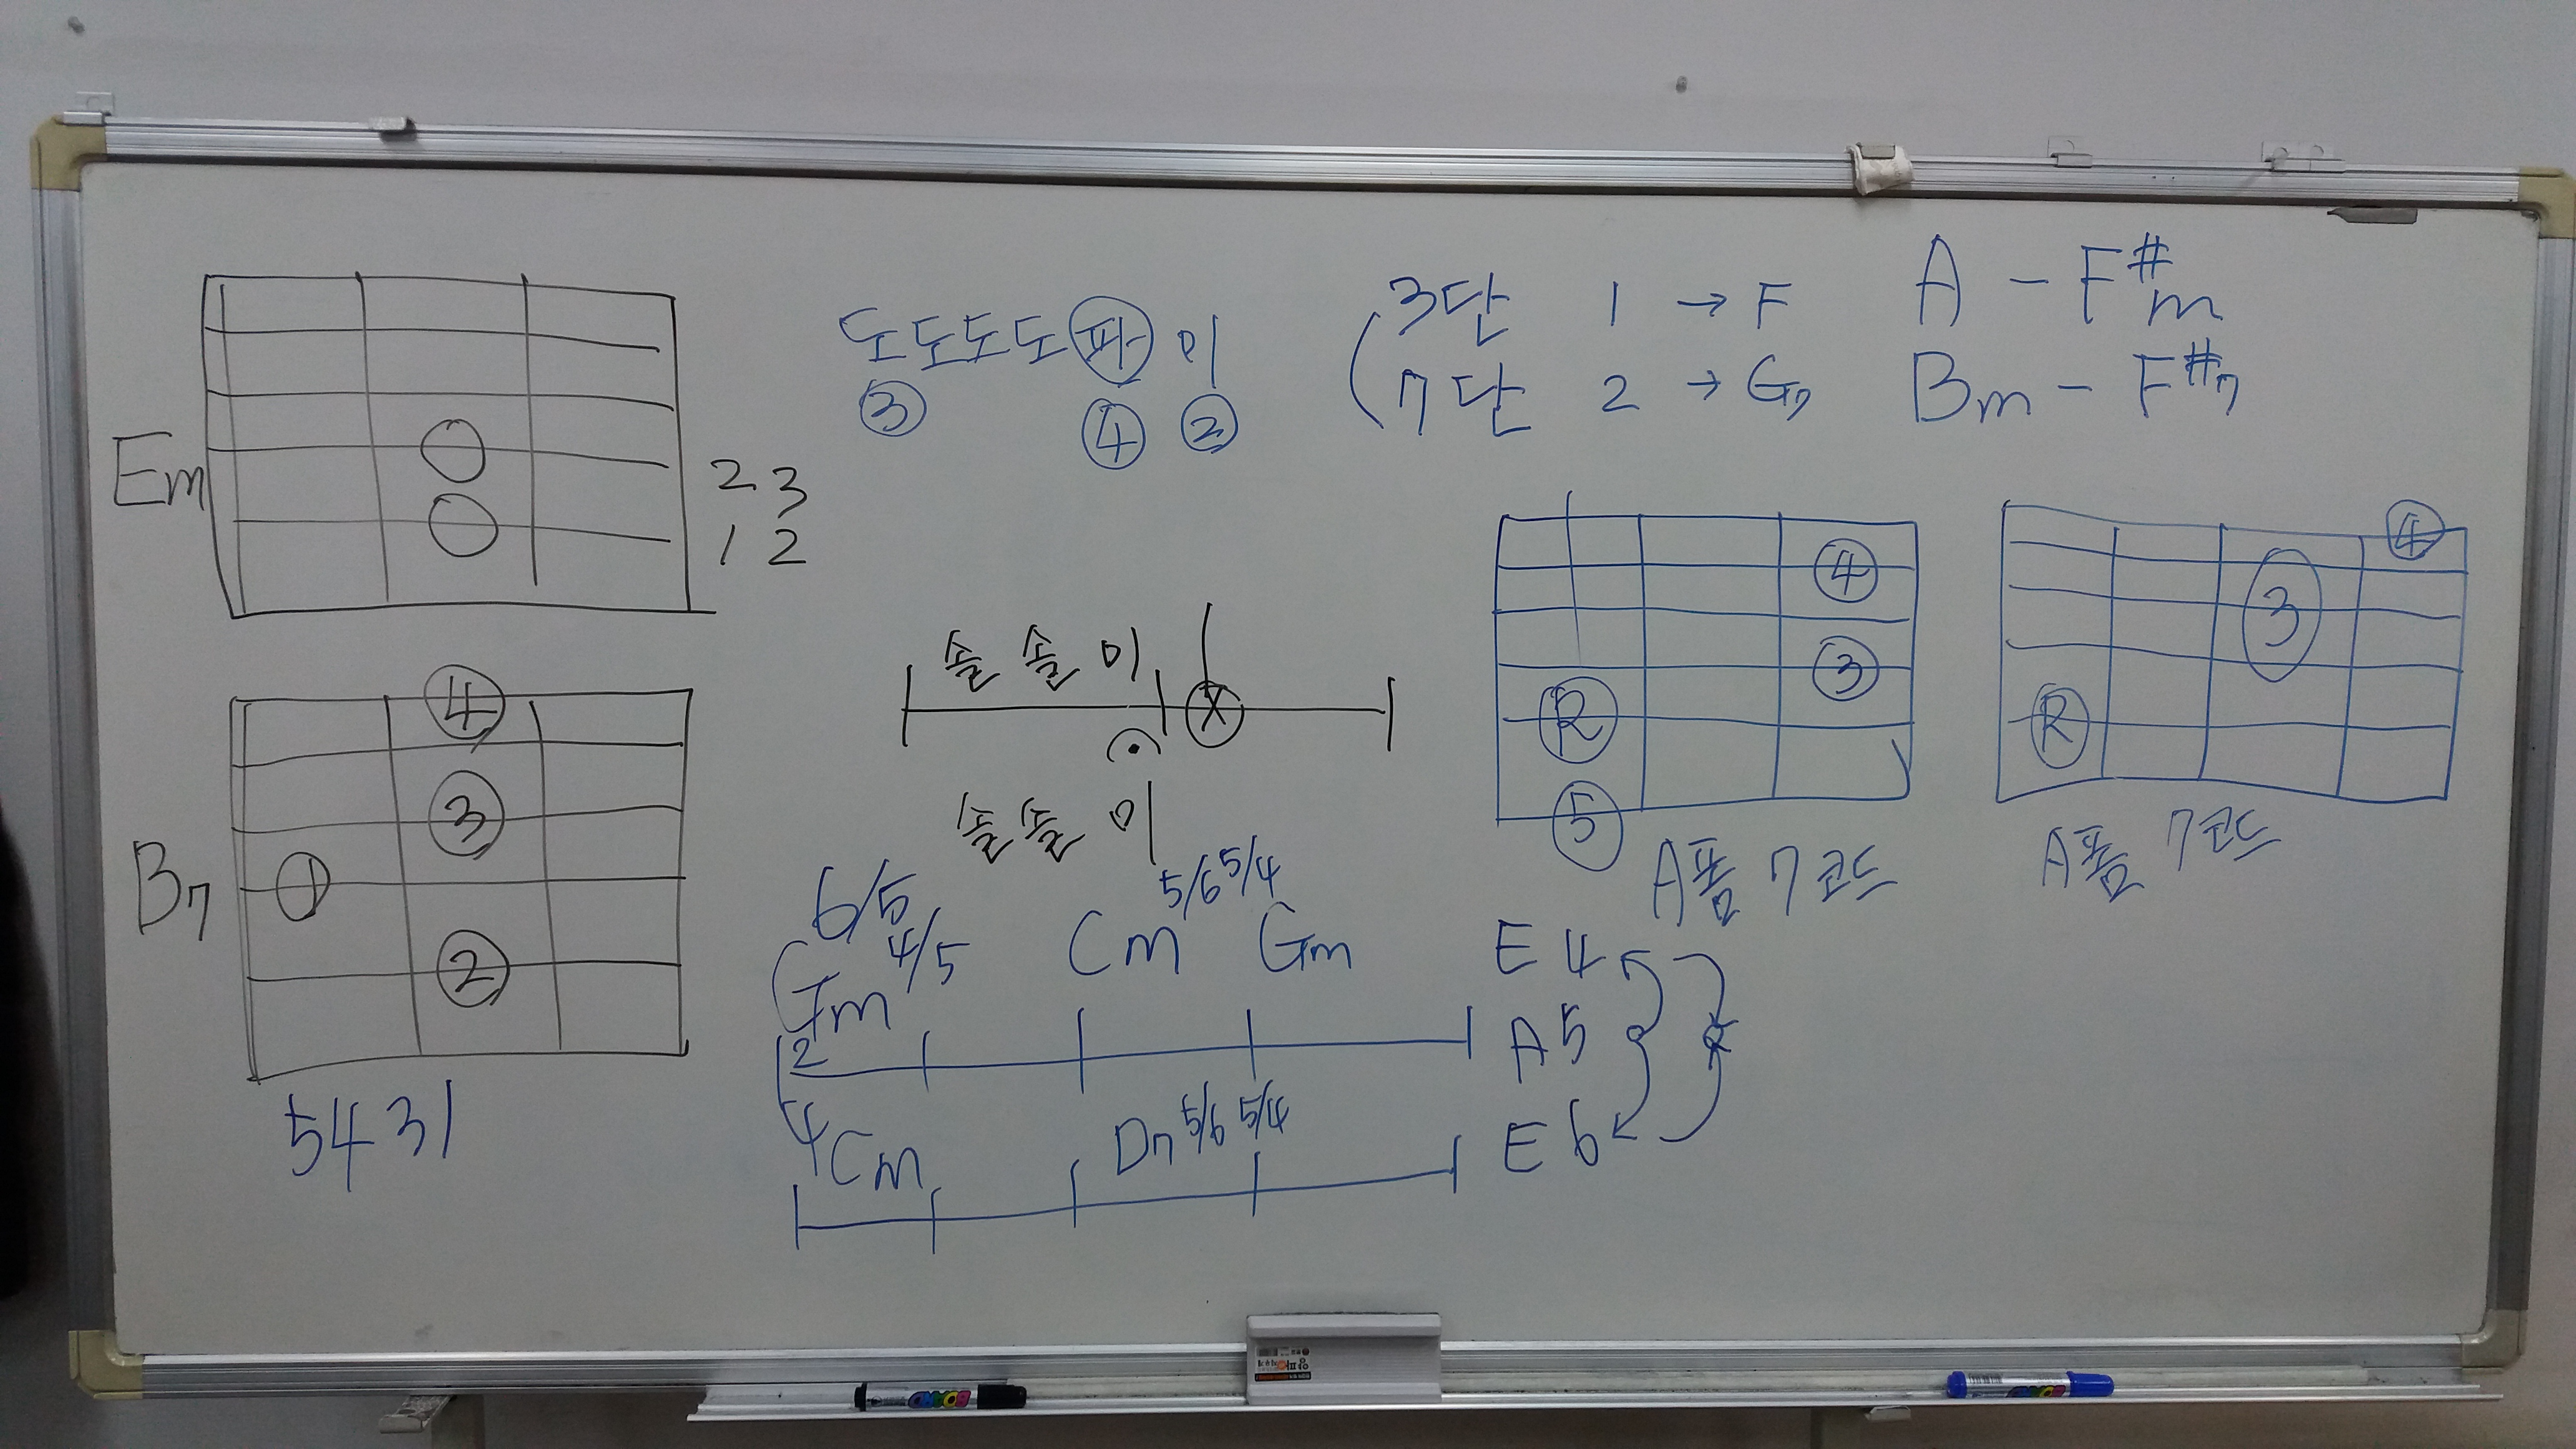 Em
2 3
1 2
B7
④
③
①
②
5431
도도도도파 미
③ ④ ②
3단 1 → F
7단 2 → G7
A - F#m
Bm - F#7
솔 솔 미
X
솔솔 미
6/5
Gm 4/5 Cm 5/6 5/4 Gm
2
4
Cm D7 5/6 5/4
④
③
R
⑤
A폼 7코드
④
3
R
A폼 7코드
E 4
A 5
E 6